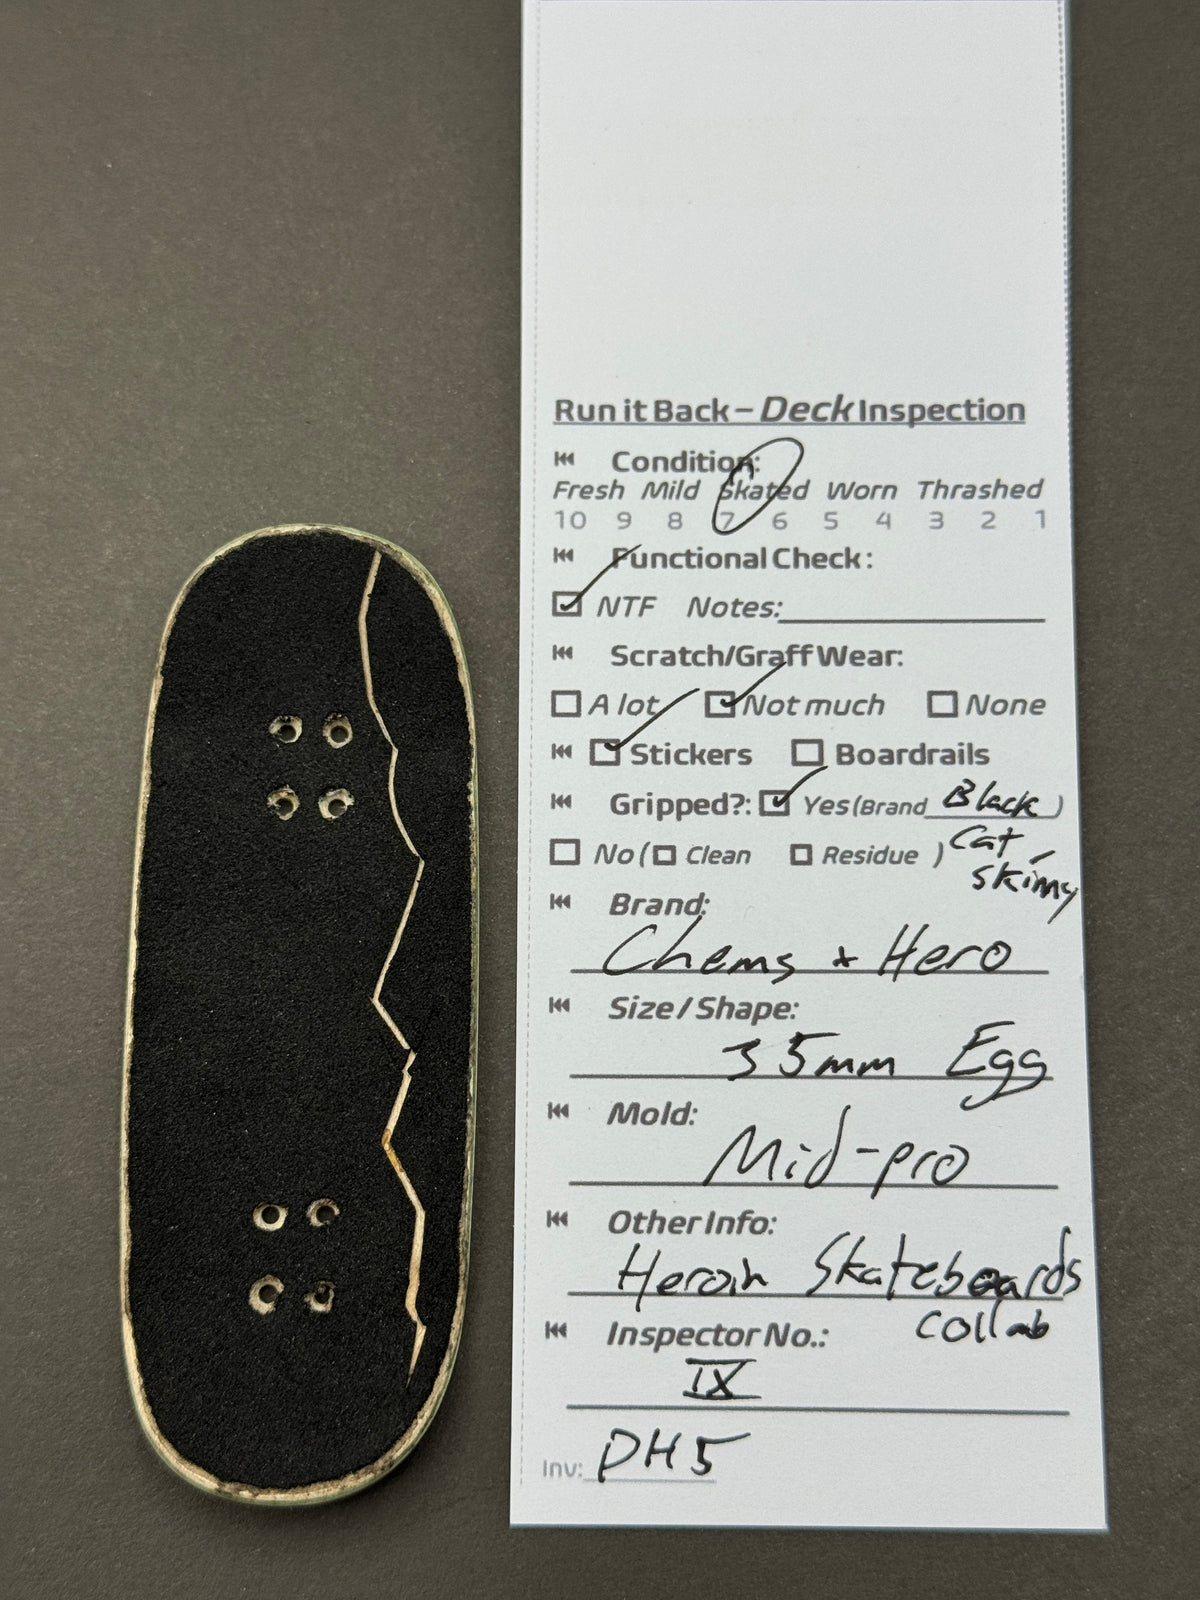 Run it Back – Deck Inspection
Condition:
Fresh Mild Skated Worn Thrashed
10 9 8 7 6 5 4 3 2 1
Functional Check:
NTF Notes:
Scratch/Graff Wear:
A lot Not much None
Stickers Boardrails
Gripped?: Yes (Brand Black )
No ( Clean Residue ) Cat
Skinny
Brand:
Chems + Hero
Size / Shape:
35mm Egg
Mold:
Mid-pro
Other Info:
Heroin Skateboards
Collab
Inspector No.:
IX
Inv: DH5